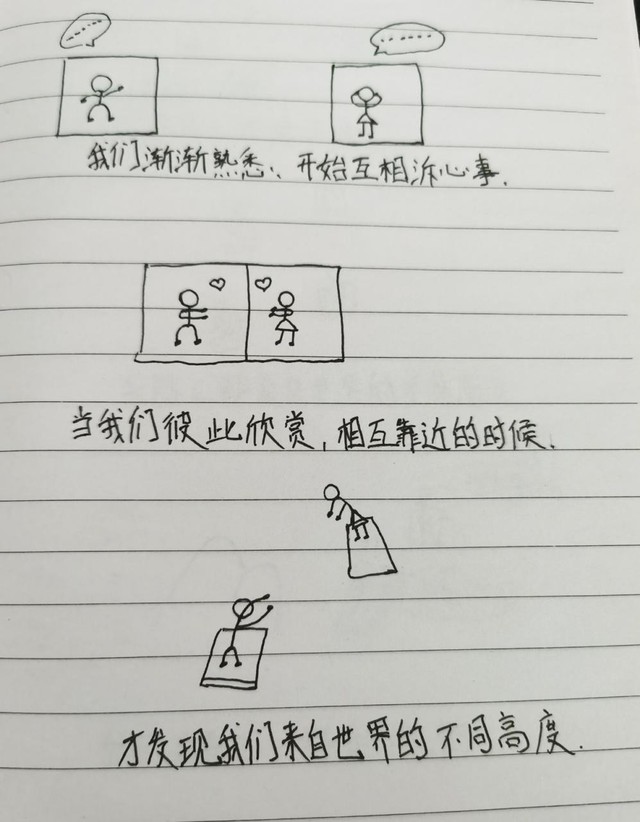 我们渐渐熟悉、开始互相诉心事.
当我们彼此欣赏,相互靠近的时候.
才发现我们来自世界的不同高度.